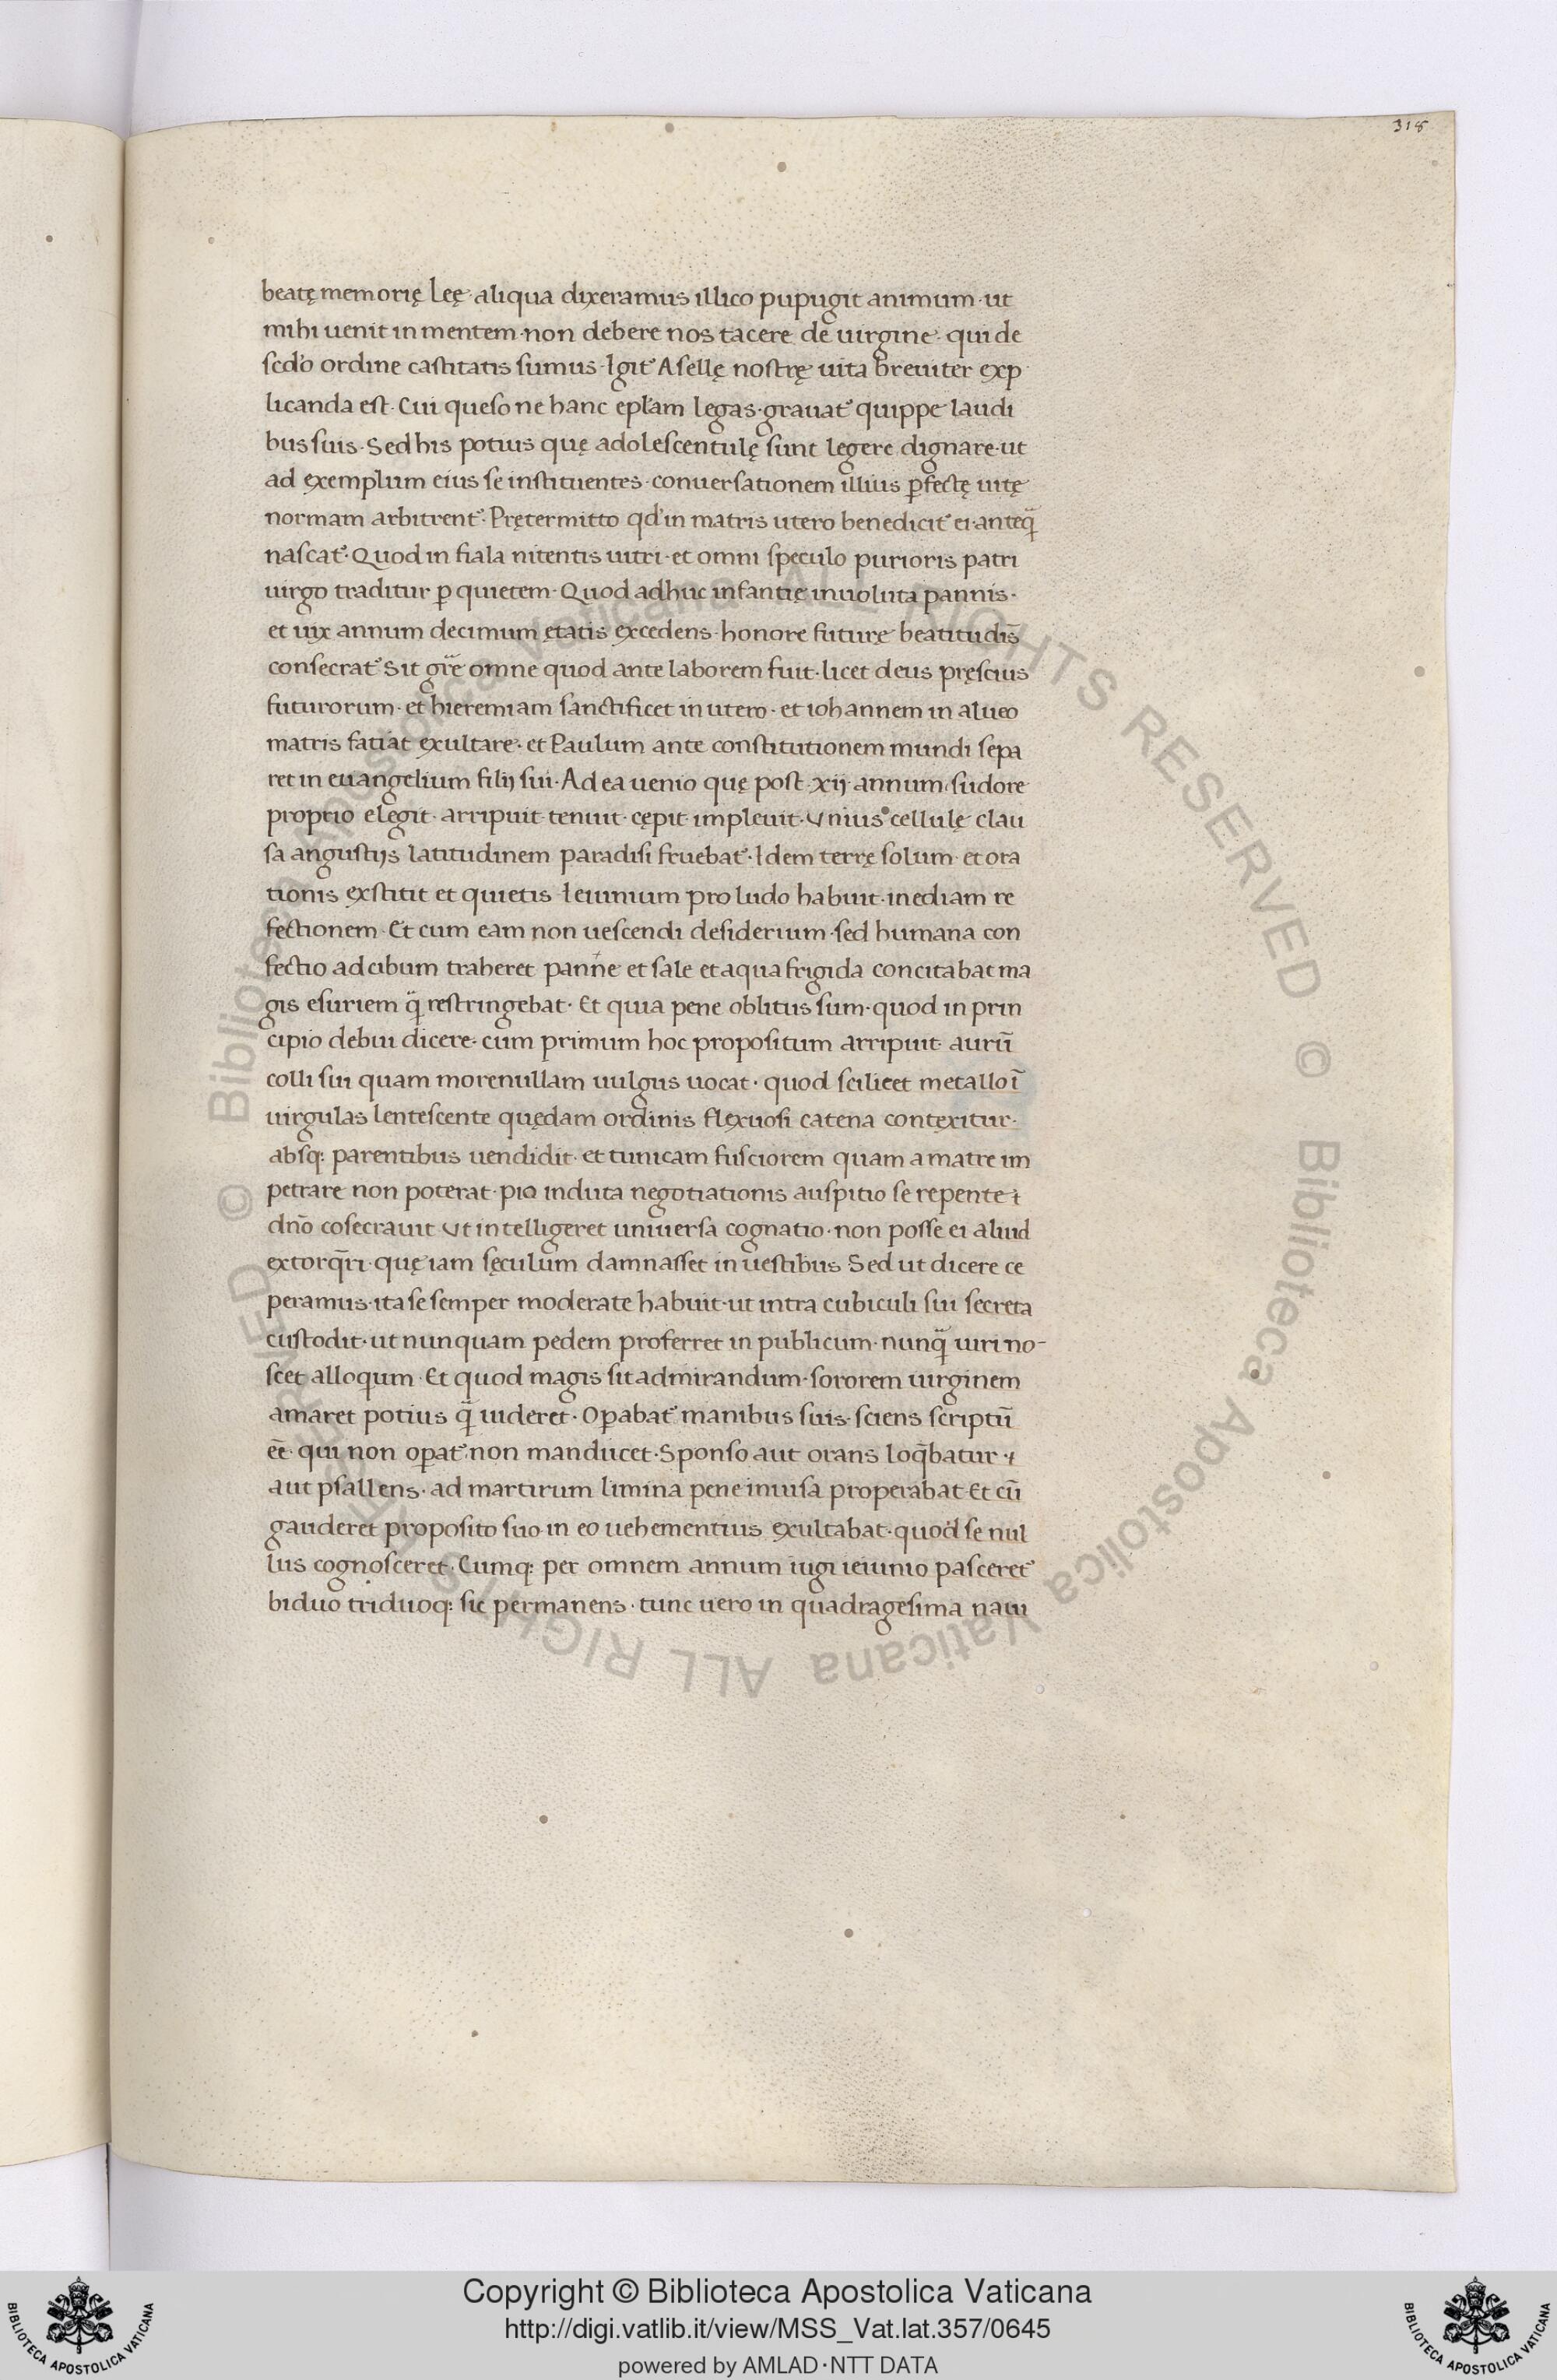 318
beatę memorię Leę · aliqua dixeramus illico pupugit animum · ut
mihi uenit in mentem · non debere nos tacere de uirgine · qui de
scd̓o ordine castitatis sumus · Igit᷑ Asellę nostrę uita breuiter exp
licanda est · Cui queso ne hanc epl̓am legas · grauat᷑ quippe laudi
bus suis · Sed his potius quę adolescentulę sunt legere dignare · ut
ad exemplum eius se instituentes · conuersationem illius ꝑfectę uitę
normam arbitrent᷑ · Prętermitto qd̓ in matris utero benedicit᷑ ei · anteq̃
nascat᷑ · Quod in fiala nitentis uitri · et omni speculo purioris patri
uirgo traditur ꝑ quietem · Quod adhuc infantię inuoluta pannis ·
et uix annum decimum ętatis excedens · honore futurę beatitudis̄
consecrat᷑ Sit gr̄e omne quod ante laborem fuit · licet deus pręscius
futurorum · et hieremiam sanctificet in utero · et iohannem in alueo
matris fatiat exultare · et Paulum ante constitutionem mundi sepa
ret in euangelium filij sui · Ad ea uenio quę post · xij · annum sudore
proprio elegit · arripuit · tenuit · cępit · impleuit · Vnius cellulę clau
sa angustijs latitudinem paradisi fruebat᷑ · Idem terrę solum · et ora
tionis exstitit et quietis · Ieiunium pro ludo habuit · inediam re
fectionem · Et cum eam non uescendi desiderium · sed humana con
fectio ad cibum traheret panne et sale et aqua frigida concitabat ma
gis esuriem q̃ restringebat · Et quia pene oblitus sum · quod in prin
cipio debui dicere · cum primum hoc propositum arripuit aurū
colli sui quam morenullam uulgus uocat · quod scilicet metallo ī
uirgulas lentescente quędam ordinis flexuosi catena contexitur ·
absq: parentibus uendidit · et tunicam fusciorem quam a matre im
petrare non poterat · pio induta negotiationis auspitio se repente ·
dn̄o cosecrauit Vt intelligeret uniuersa cognatio · non posse ei aliud
extorq̄ri · quę iam sęculum damnasset in uestibus Sed ut dicere ce
peramus · ita se semper moderate habuit · ut intra cubiculi sui secreta
custodit · ut nunquam pedem proferret in publicum · nunq̃ uiri no-
scet alloqium · Et quod magis sit admirandum · sororem uirginem
amaret potius q̃ uideret · Oꝑabat᷑ manibus suis · sciens scriptū
eē · qui non oꝑat᷑ non manducet · Sponso aut orans loq̄batur ·
aut psallens · ad martirum limina pene inuisa properabat Et cū
gauderet proposito suo · in eo uehementius exultabat · quod se nul
lus cognosceret · Cumq: per omnem annum iugi ieiunio pasceret᷑
biduo triduoq: sic permanens · tunc uero in quadragesima naui
© Biblioteca Apostolica Vaticana ALL RIGHTS RESERVED
© Biblioteca Apostolica Vaticana ALL RIGHTS RESERVED
Copyright © Biblioteca Apostolica Vaticana
http://digi.vatlib.it/view/MSS_Vat.lat.357/0645
powered by AMLAD·NTT DATA
BIBLIOTECA APOSTOLICA VATICANA
BIBLIOTECA APOSTOLICA VATICANA